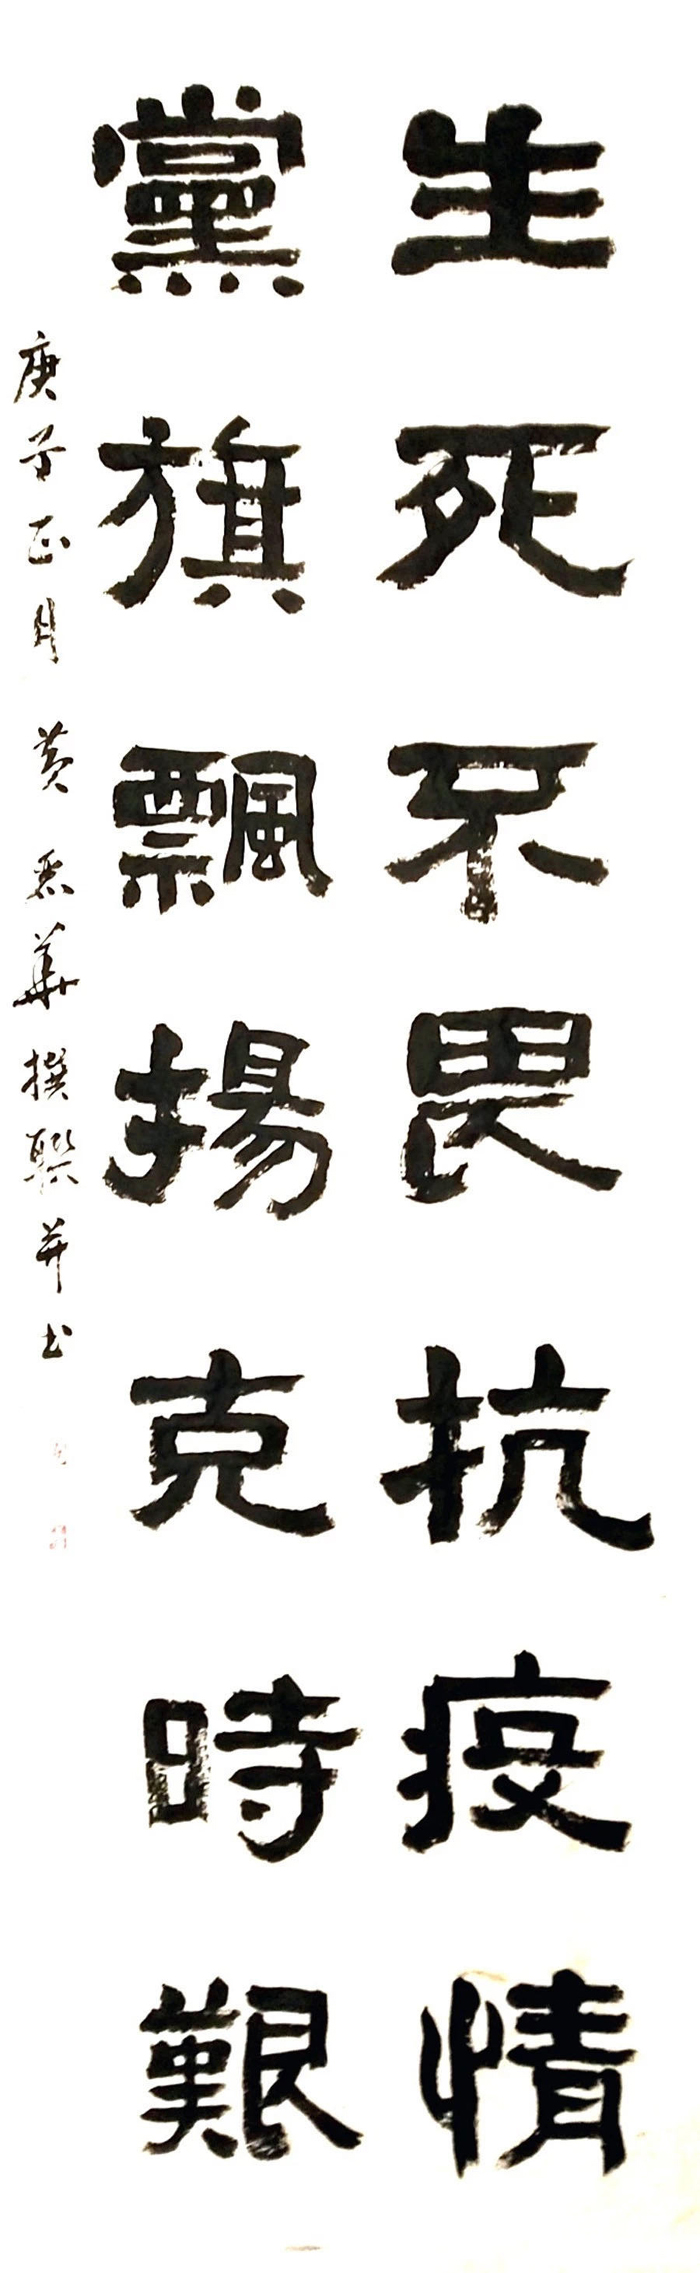 生死不畏抗疫情
黨旗飄揚克時艱
庚子正月 黃 華撰聯并书